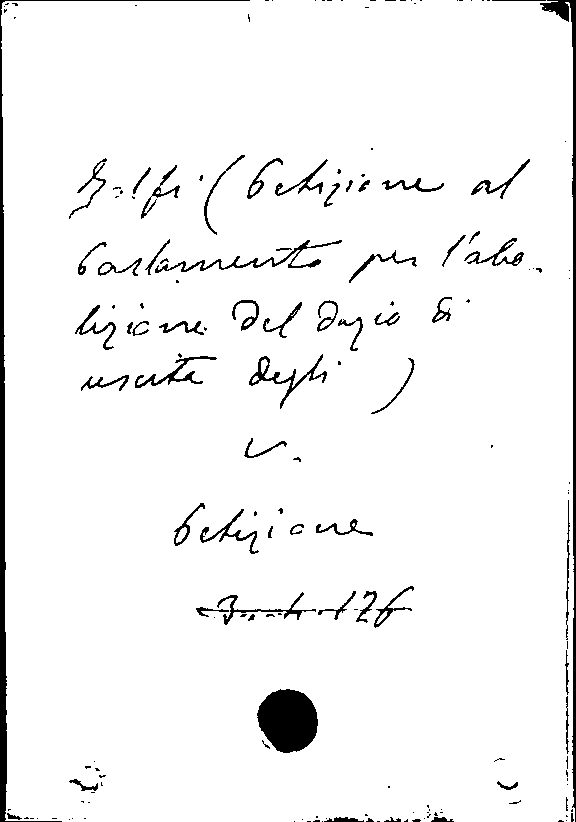 Zolfi (Petizione al
Parlamento per l'abo-
lizione del dazio di
uscita degli)
V.
Petizione
126